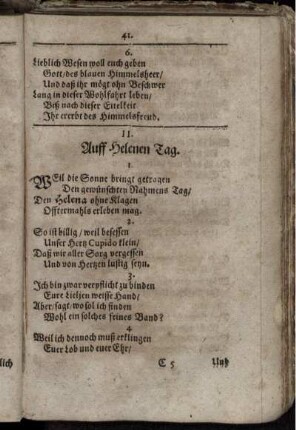 41.
6.
Lieblich Wesen woll euch geben
Gott/des blauen Himmelsheer/
Und daß ihr mögt ohn Beschwer
Lang in dieser Wohlfahrt leben/
Biß nach dieser Eitelkeit
Ihr ererbt des Himmelsfreud.
11.
Auff Helenen Tag.
1.
WEil die Sonne bringt getragen
Den gewünschten Nahmens Tag/
Den Helena ohne Klagen
Offtermahls erleben mag.
2.
So ist billig/weil besessen
Unser Hertz Cupido klein/
Daß wir aller Sorg vergessen
Und von Hertzen lustig seyn.
3.
Ich bin zwar verpflicht zu binden
Eure Lieljen weisse Hand/
Aber/sagt/wo sol ich finden
Wohl ein solches feines Band?
4.
Weil ich dennoch muß erklingen
Euer Lob und euer Ehr/
C 5
Und
lich